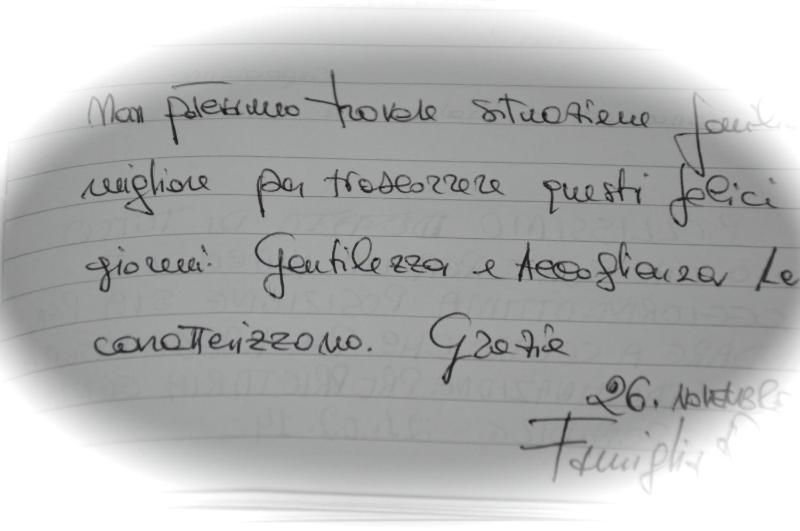 Non potessimo trovare situazione
migliore per trascorrere questi felici
giorni. Gentilezza e Accoglienza Le
caratterizzano. Grazie
26. NOVEMBRE
Famiglia